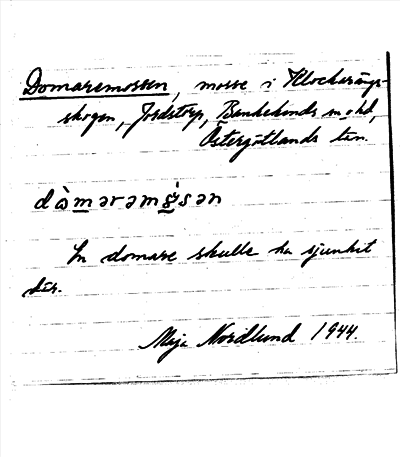 Domaremossen, mosse i Klockarängs-
skogen, Jordstorp, Bankekinds sn o hd,
Östergötlands län.
dòmarəmós̀ən
En domare skulle ha sjunkit
där.
Maja Nordlund 1944.